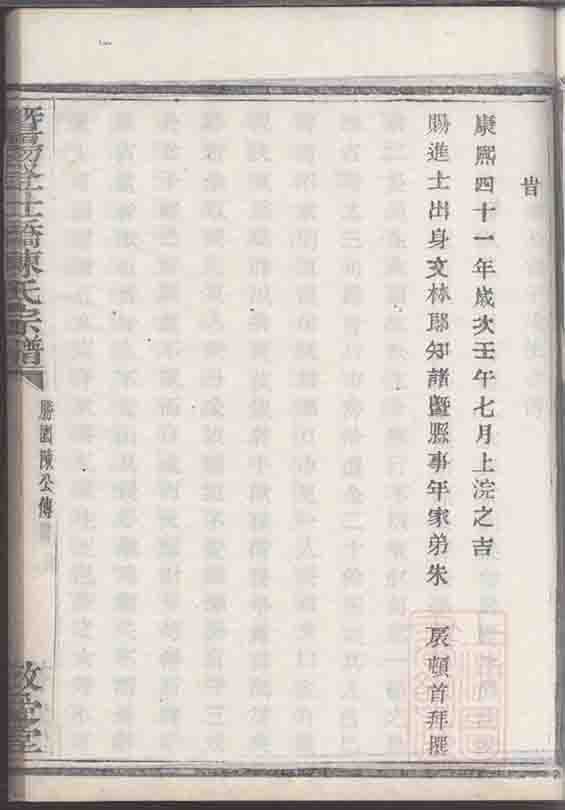 旹
康熙四十一年歲次壬午七月上浣之吉
賜進士出身文林郎知諸暨縣事年家弟朱　扆頓首拜撰
暨陽
橋陳氏宗譜
勝國陳公傳
敘堂